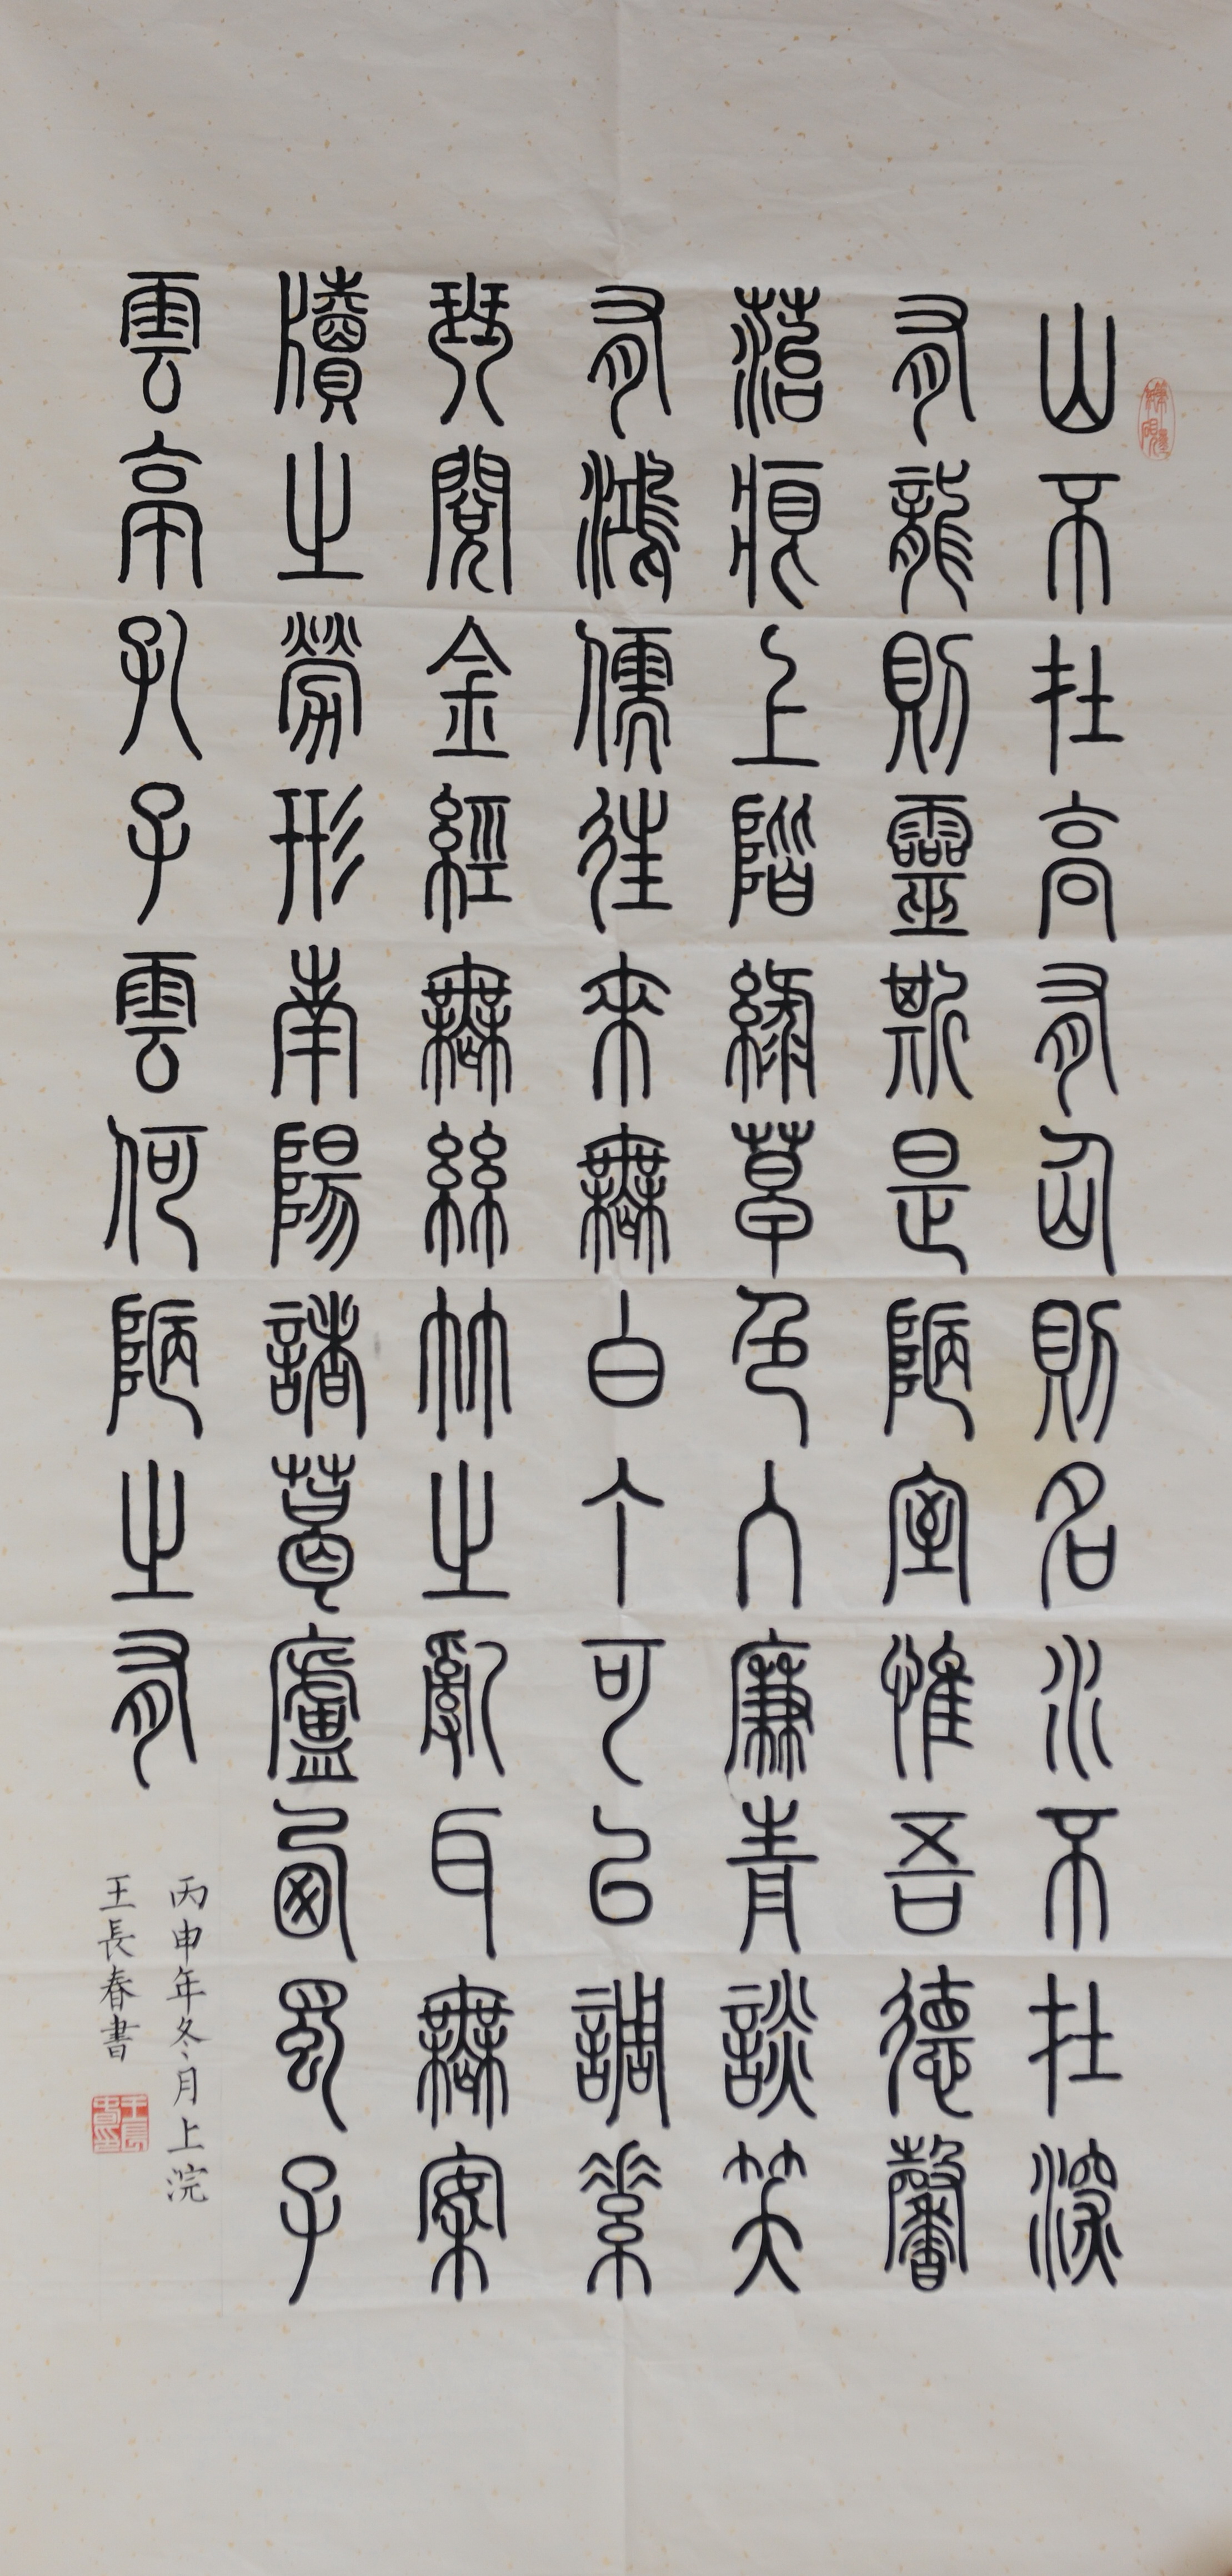 山不在高有仙則名水不在深
有龍則靈斯是陋室惟吾德馨
落痕上階綠草色入廉青談笑
有鴻儒往來無白丁可以調素
琴閱金經無絲竹之亂耳無案
牘之勞形南陽諸葛廬西蜀子
雲亭孔子雲何陋之有
丙申年冬月上浣
王長春書